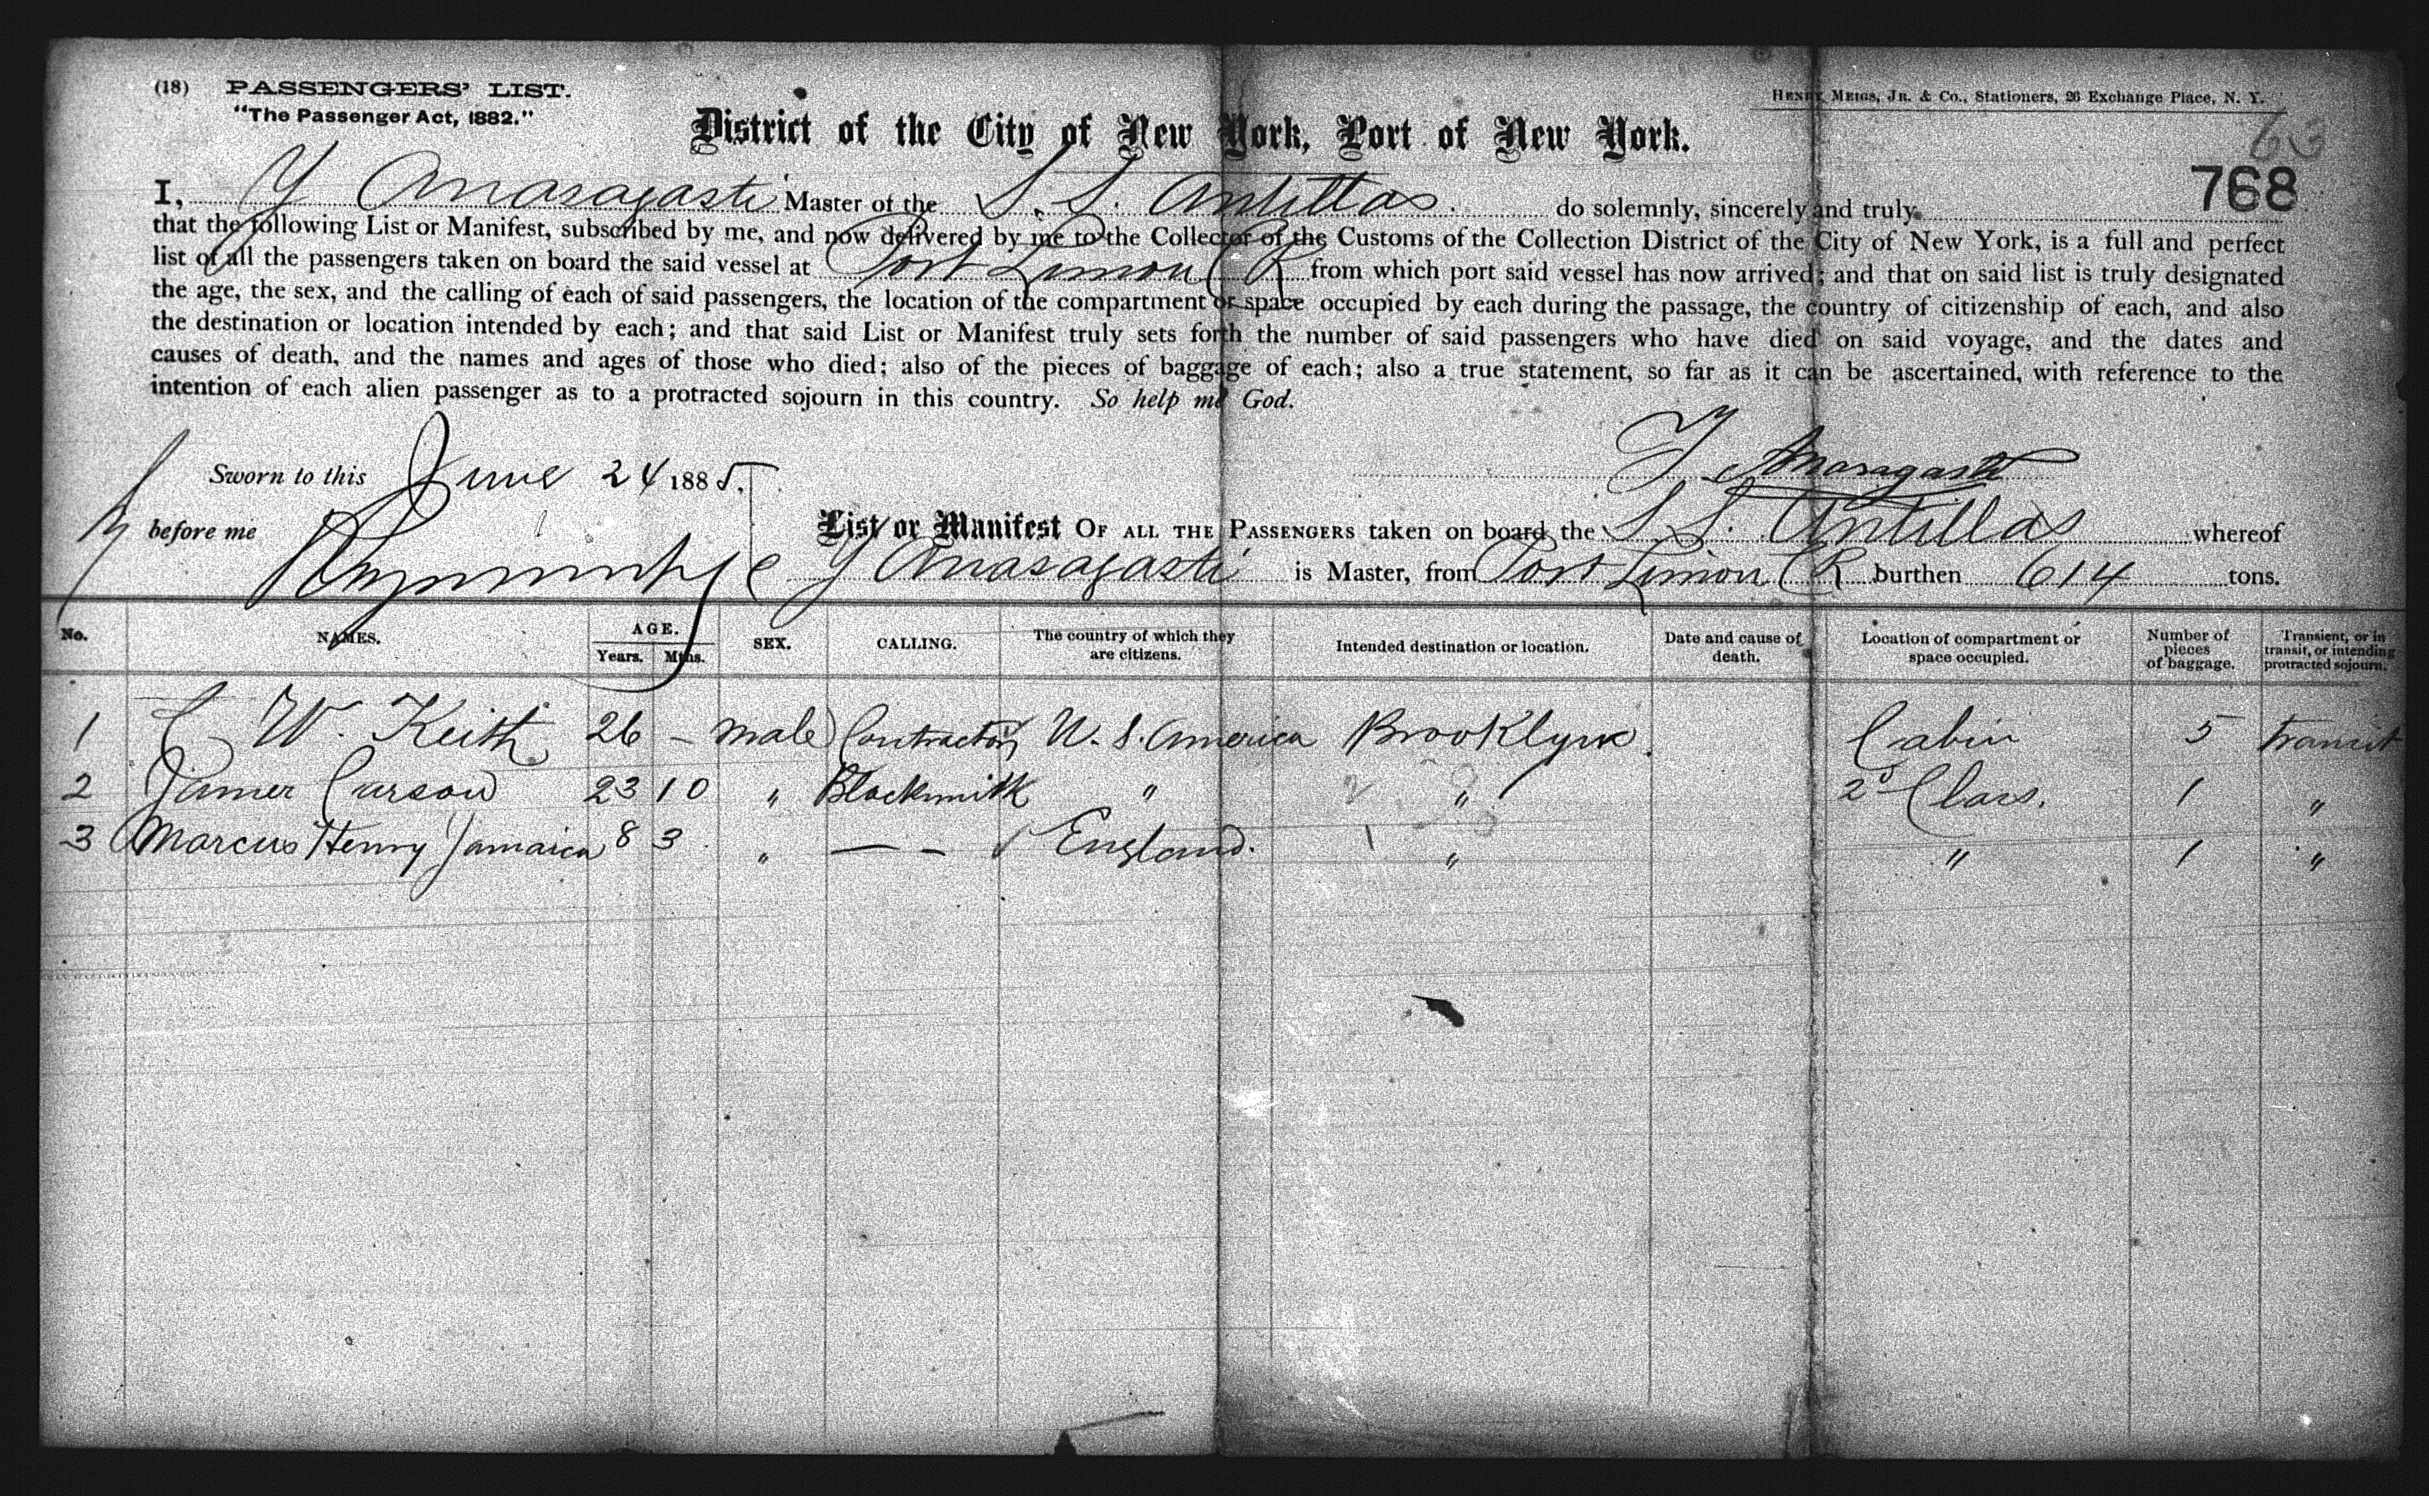 (18) PASSENGERS' LIST.
"The Passenger Act, 1882."
HENRY MEIGS, JR. & CO., Stationers, 26 Exchange Place, N. Y.
District of the City of New York, Port of New York.
63
768
I, Y Anasagasti Master of the S. S. Antillas do solemnly, sincerely and truly
that the following List or Manifest, subscribed by me, and now delivered by me to the Collector of the Customs of the Collection District of the City of New York, is a full and perfect
list of all the passengers taken on board the said vessel at Port Limon C R from which port said vessel has now arrived; and that on said list is truly designated
the age, the sex, and the calling of each of said passengers, the location of the compartment or space occupied by each during the passage, the country of citizenship of each, and also
the destination or location intended by each; and that said List or Manifest truly sets forth the number of said passengers who have died on said voyage, and the dates and
causes of death, and the names and ages of those who died; also of the pieces of baggage of each; also a true statement, so far as it can be ascertained, with reference to the
intention of each alien passenger as to a protracted sojourn in this country. So help me God.
Sworn to this June 24 1885. Y Anasagasti
before me
List or Manifest OF ALL THE PASSENGERS taken on board the S. S. Antillas whereof
Y Anasagasti is Master, from Port Limon C R burthen 614 tons.
No. NAMES. AGE. Years. Mths. SEX. CALLING. The country of which they are citizens. Intended destination or location. Date and cause of death. Location of compartment or space occupied. Number of pieces of baggage. Transient, or in transit, or intending protracted sojourn.
1 C W. Keith 26 – Male Contractor U. S. America Brooklyn Cabin 5 transit
2 James Carson 23 10 " Blacksmith " " 2d Class. 1 "
3 Marcus Henry Jamaica 8 3 " — – England. " " 1 "